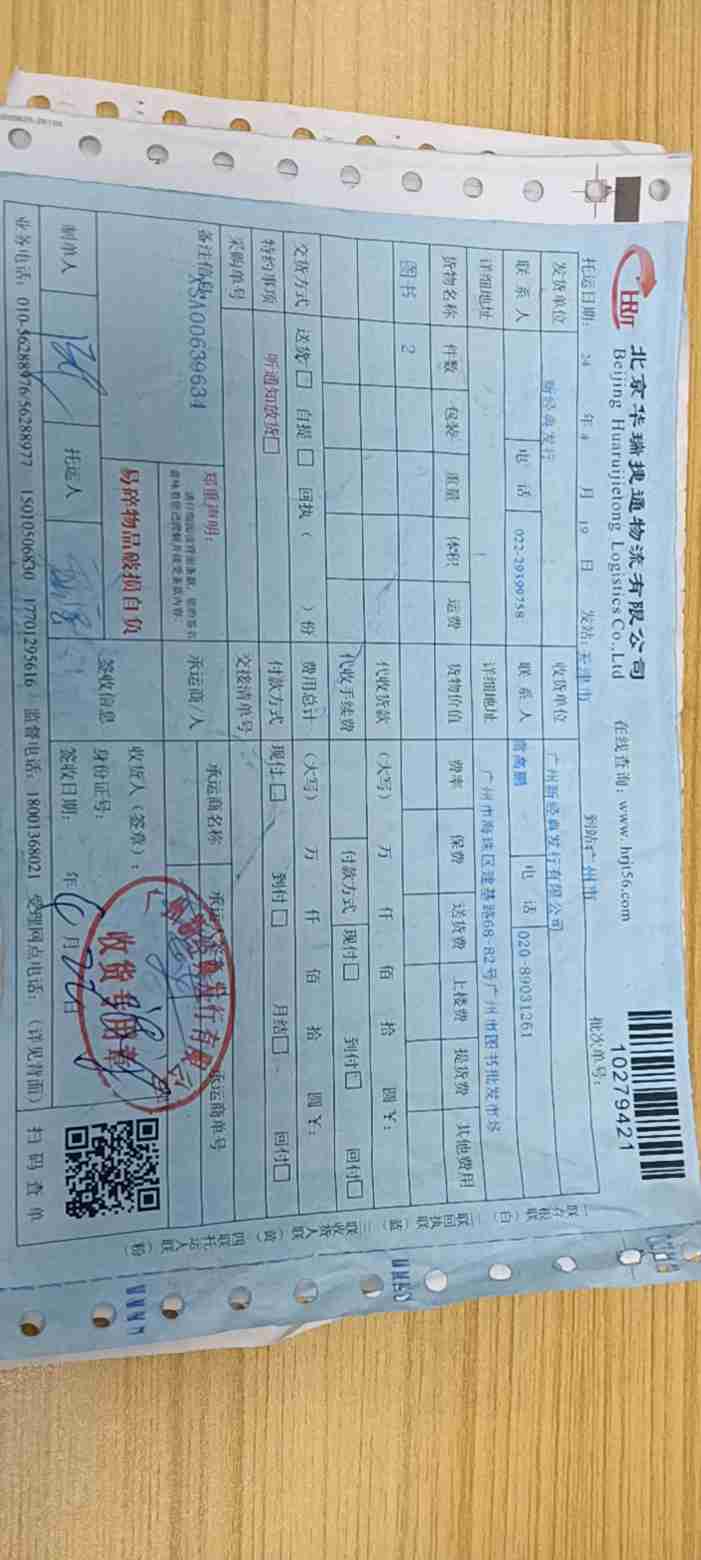 北京华瑞捷通物流有限公司
Beijing Huaruijietong Logistics Co.,Ltd
在线查询：www.hrjt56.com
10279421
托运日期： 24 年 4 月 19 日 发站：天津市 到站：广州市 批次单号：
发货单位 新经典发行 收货单位 广州新经典发行有限公司
联系人 电话 022-29399758 联系人 曾高鹏 电话 020-89031261
详细地址 详细地址 广州市海珠区建基路68-82号广州市图书批发市场
货物名称 件数 包装 重量 体积 运费 货物价值 费率 保费 送货费 上楼费 提货费 其他费用
图书 2
代收货款 （大写） 万 仟 佰 拾 圆￥：
代收手续费 付款方式 现付□ 到付□ 回付□
交货方式 送货□ 自提□ 回执（ ）份 费用总计 （大写） 万 仟 佰 拾 圆￥：
特约事项 听通知放货□ 付款方式 现付□ 到付□ 月结□ 回付□
采购单号 交接清单号
备注信息 XS100639634 郑重声明： 承运商/人 承运商名称 承运商单号
请仔细阅读背面条款，您的签名
意味着您已理解并接受条款内容。
易碎物品破损自负
签收信息 收货人（签章）：
身份证号：
签收日期： 年 6 月 日
收货专用章
制单人 托运人
扫码查单
业务电话：010-56288976/56288977 15010506830 17701295616 监督电话：18001368021 受理网点电话：（详见背面）
一联存根（白） 二联回执（蓝） 三联收货人（黄） 四联托运人（粉）